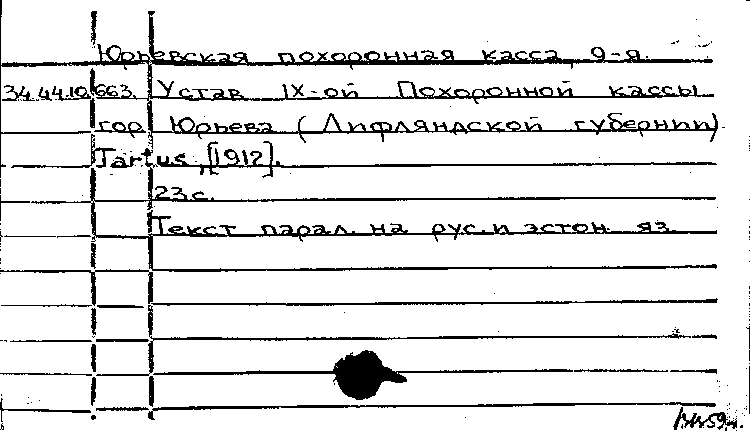 Юрьевская похоронная касса, 9-я.
34.44.10.663. Устав IX-ой Похоронной кассы
гор. Юрьева (Лифляндской губернии)
Tartus, [1912].
23с.
Текст парал. на рус. и эстон. яз.